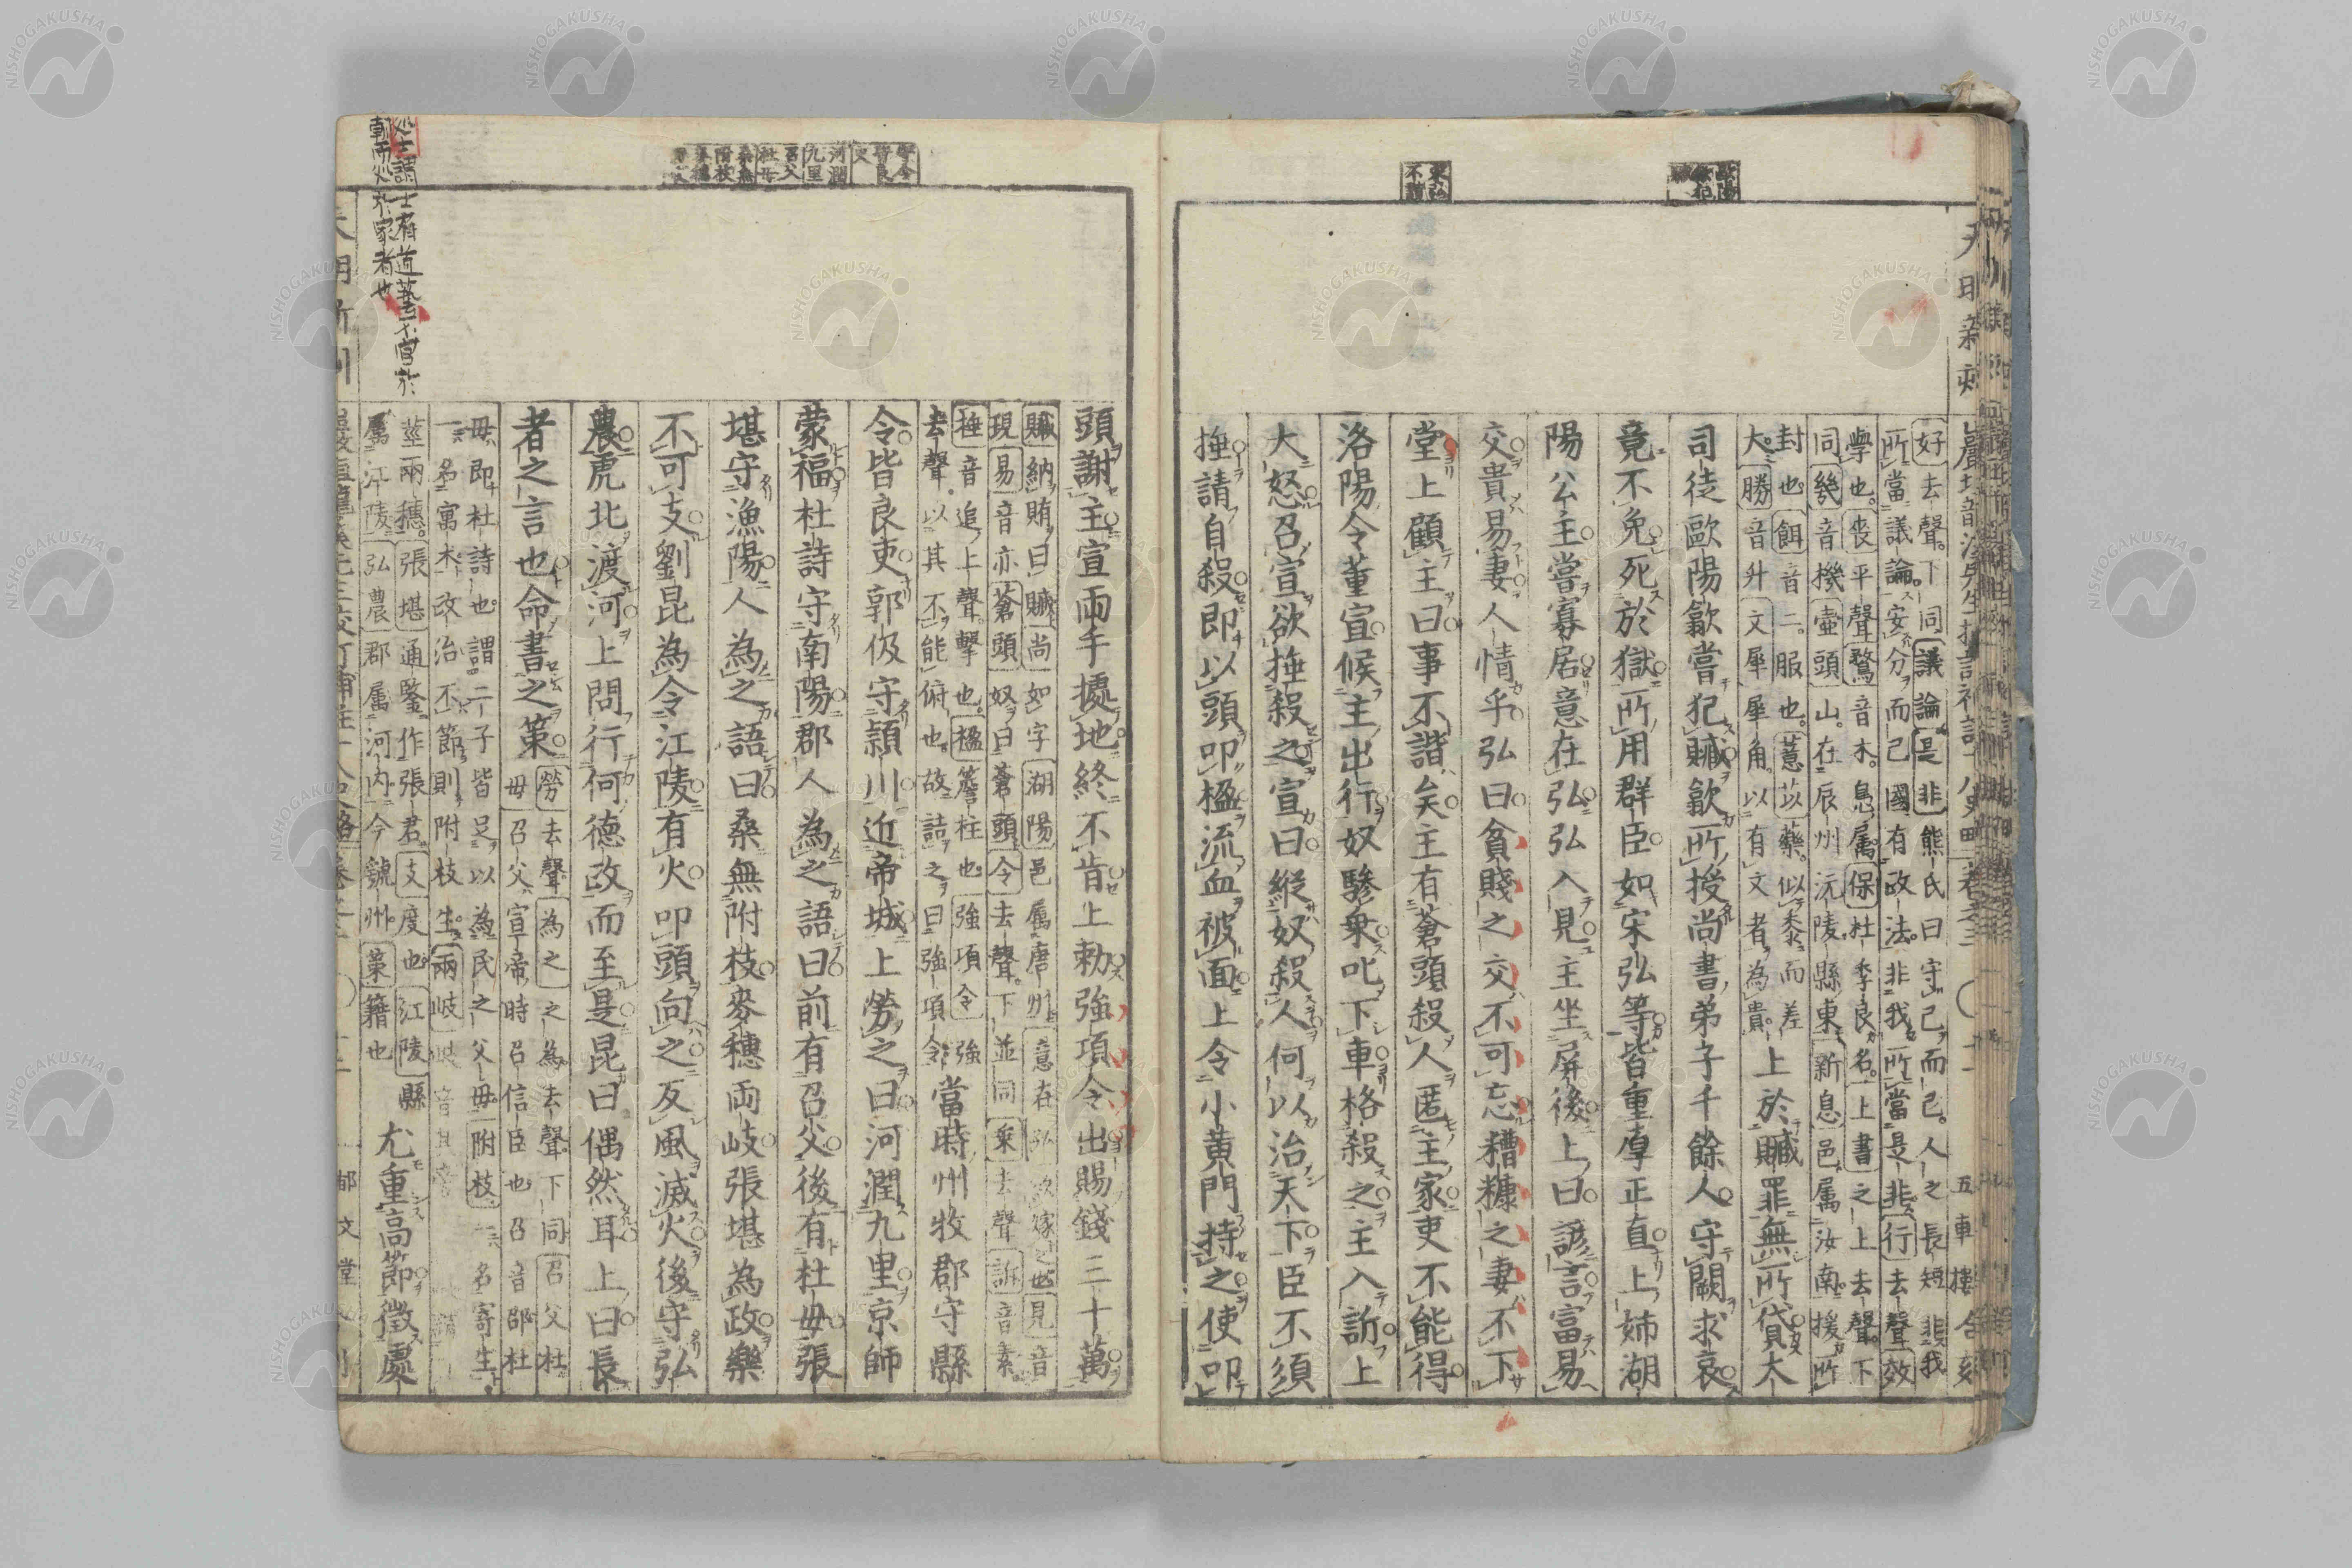 好去聲。下同議論是非熊氏曰守己而已。人之長短非我
所當議論。安分而已國有政法。非我所當是非行去聲效
學也。喪平聲鶩音木。鳧属保杜季良名上書之上去聲。下
同幾音機壺頭山。在辰州沅陵縣東新息邑属汝南援所
封也。餌音二。服也。薏苡藥。似黍而差
大勝音升文犀犀角。以有文者為貴。
上於贓罪無所貸大
司徒歐陽歙嘗犯贓歙所授尚書弟子千餘人守闕求哀
竟不免死於獄所用群臣如宋弘等皆重厚正直上姉湖
陽公主嘗寡居意在弘弘入見主坐屏後上曰諺言富易
交貴易妻人情乎弘曰貧賤之交不可忘糟糠之妻不下
堂上顧主曰事不諧矣主有蒼頭殺人匿主家吏不能得
洛陽令董宣候主出行奴驂乗叱下車格殺之主入訴上
大怒召宣欲捶殺之宣曰縱奴殺人何以治天下臣不須
捶請自殺即以頭叩楹流血被面上令小黄門持之使叩
頭謝主宣兩手據地終不肯上勅強項令出賜錢三十萬
贓納賄曰贓尚如字湖陽邑属唐州意在弘欲嫁之也見音
現易音亦蒼頭奴曰蒼頭令去聲。下並同乗去聲訴音素
捶音追上聲。擊也。楹簷柱也強項令強
去聲。以其不能俯也。故詰之曰強項令
當時州牧郡守縣
令皆良吏郭伋守潁川近帝城上勞之曰河潤九里京師
蒙福杜詩守南陽郡人為之語曰前有召父後有杜母張
堪守漁陽人為之語曰桑無附枝麥穗両岐張堪為政樂
不可支劉昆為令江陵有火叩頭向之反風滅火後守弘
農虎北渡河上問行何德政而至是昆曰偶然耳上曰長
者之言也命書之策
勞去聲為之之為去聲下同召父杜
母召父宣帝時召信臣也召音邵杜
母即杜詩也。謂二子皆足以為民之父母附枝一名寄生
一名寓木政治不節則附枝生。兩岐
莖兩穗。張堪通鑒作張君支度也江陵縣
属江陵弘農郡属河内今虢州策籍也
尤重高節徴處
處士謂士有道藝不官於
朝而火於家者也